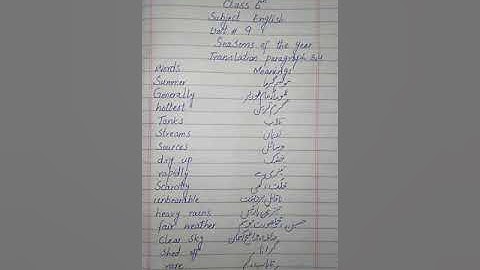 Class 6th
Subject English
Unit # 9
Seasons of the year
Translation paragraph 3,4
Words Meanings
Summer موسم گرما
Generally عام طور پر
hottest گرم ترین
Tanks تالاب
Streams ندیاں
Sources وسائل
dry up خشک
rapidly تیزی سے
Scarcity قلت، کمی
unbearable ناقابل برداشت
heavy rains بارشیں
fair weather موسم
Clear Sky صاف آسمان
Shed off گرانا
rare